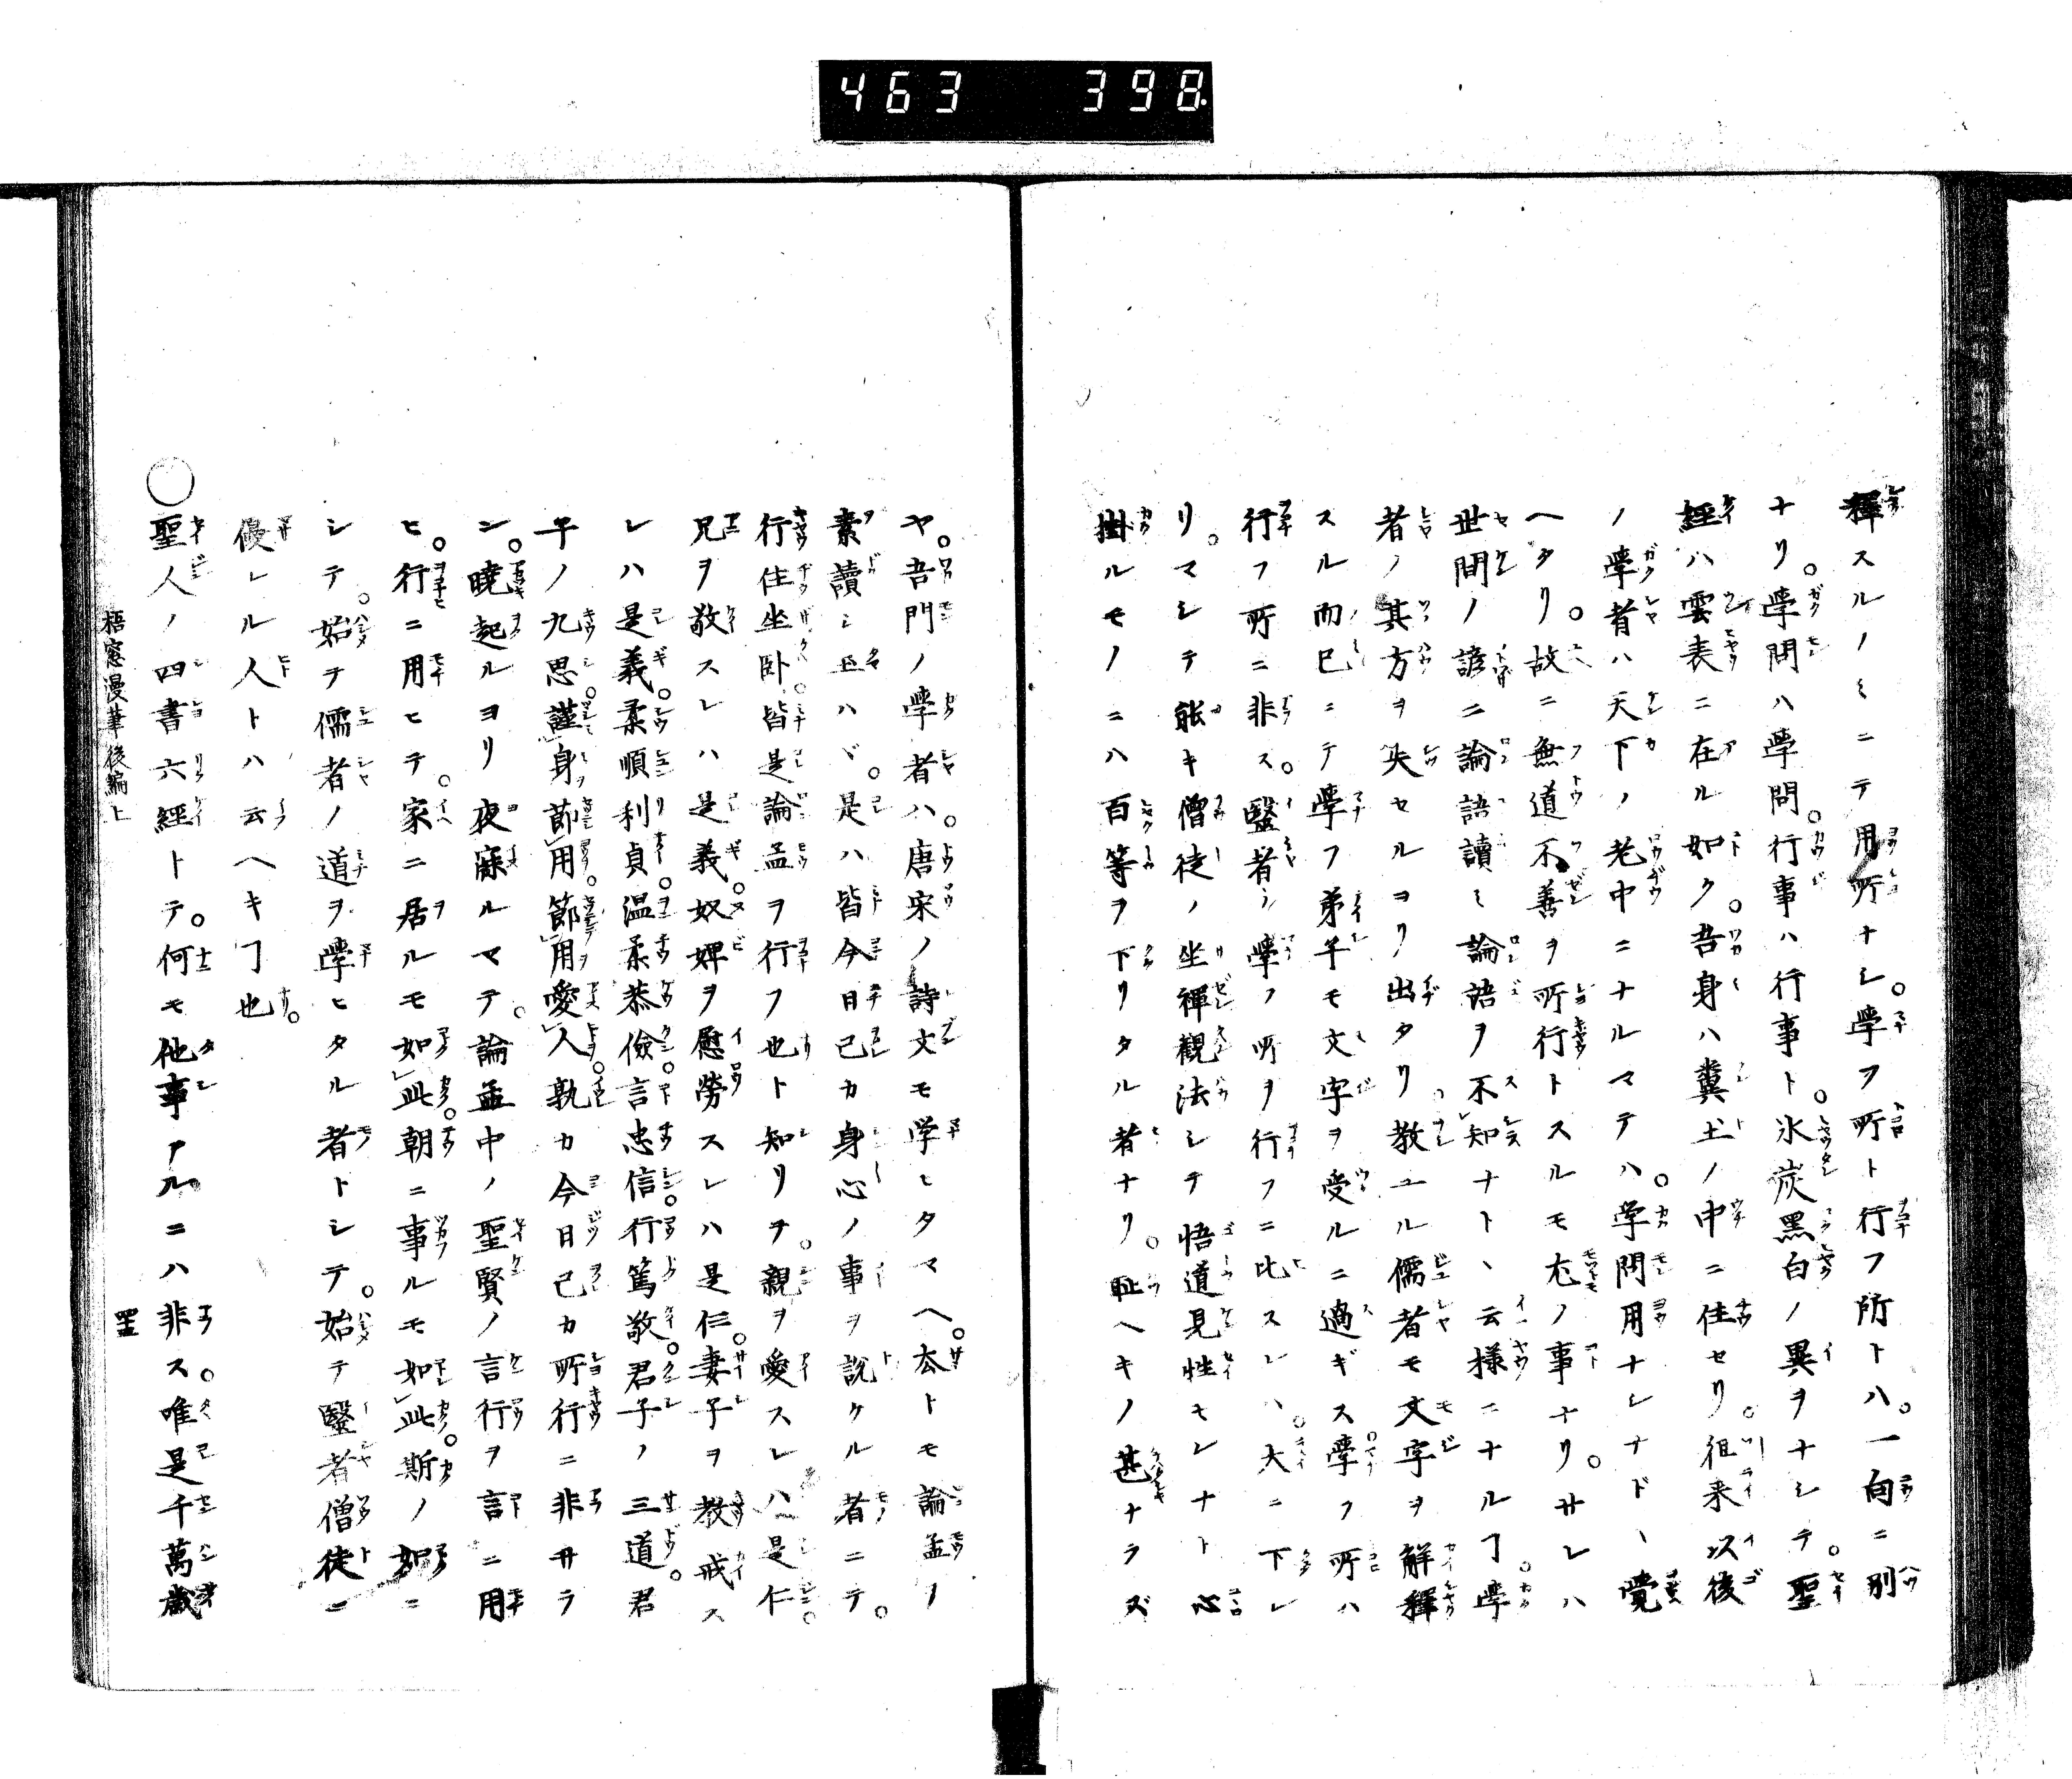 463 398
釋スルノミニテ用所ナシ。學フ所ト行フ所トハ。一向ニ別
ナリ。學問ハ學問。行事ハ行事ト。氷炭黑白ノ異ヲナシテ。聖
經ハ雲表ニ在ル如ク。吾身ハ糞土ノ中ニ住セリ。徂来以後
ノ學者ハ天下ノ老中ニナルマテハ。学問用ナシナド丶覺
ヘタリ。故ニ無道不善ヲ所行トスルモ尤ノ事ナリ。サレハ
世間ノ諺ニ論語讀ミ論語ヲ不知ナト丶云様ニナルヿ。學
者ノ其方ヲ失セルヨリ出タリ教ユル儒者モ文字ヲ解釋
スル而已ニテ學フ弟子モ文字ヲ受ルニ過ギス學フ所ハ
行フ所ニ非ス。醫者ノ學フ所ヲ行フニ比スレハ。大ニ下レ
リ。マシテ能キ僧徒ノ坐禪觀法シテ悟道見性モシナト心
掛ルモノニハ百等ヲ下リタル者ナリ。耻ヘキノ甚ナラズ
ヤ。吾門ノ學者ハ。唐宋ノ詩文モ学ヒタマヘ。夲トモ論孟ノ
素讀ミ玉ハヾ。是ハ皆今日己カ身心ノ事ヲ説クル者ニテ。
行住坐卧。皆是論孟ヲ行フ也ト知リヲ。親ヲ愛スレハ是仁。
兄ヲ敬スレハ是義。奴婢ヲ慰勞スレハ是仁。妻子ヲ教戒ス
レハ是義。柔順利貞。温柔恭儉。言忠信。行篤敬。君子ノ三道。君
子ノ九思。謹身節用。節用愛人。孰カ今日己カ所行ニ非サラ
ン。曉起ルヨリ夜寐ルマテ。論孟中ノ聖賢ノ言行ヲ言ニ用
ヒ。行ニ用ヒテ。家ニ居ルモ如此。朝ニ事ルモ如此。斯ノ如ニ
シテ。始テ儒者ノ道ヲ學ヒタル者トシテ。始テ醫者僧徒ニ
優レル人トハ云ヘキヿ也。
○聖人ノ四書六經トテ。何モ他事アルニハ非ス。唯是千萬歳
梧窓漫筆後編上